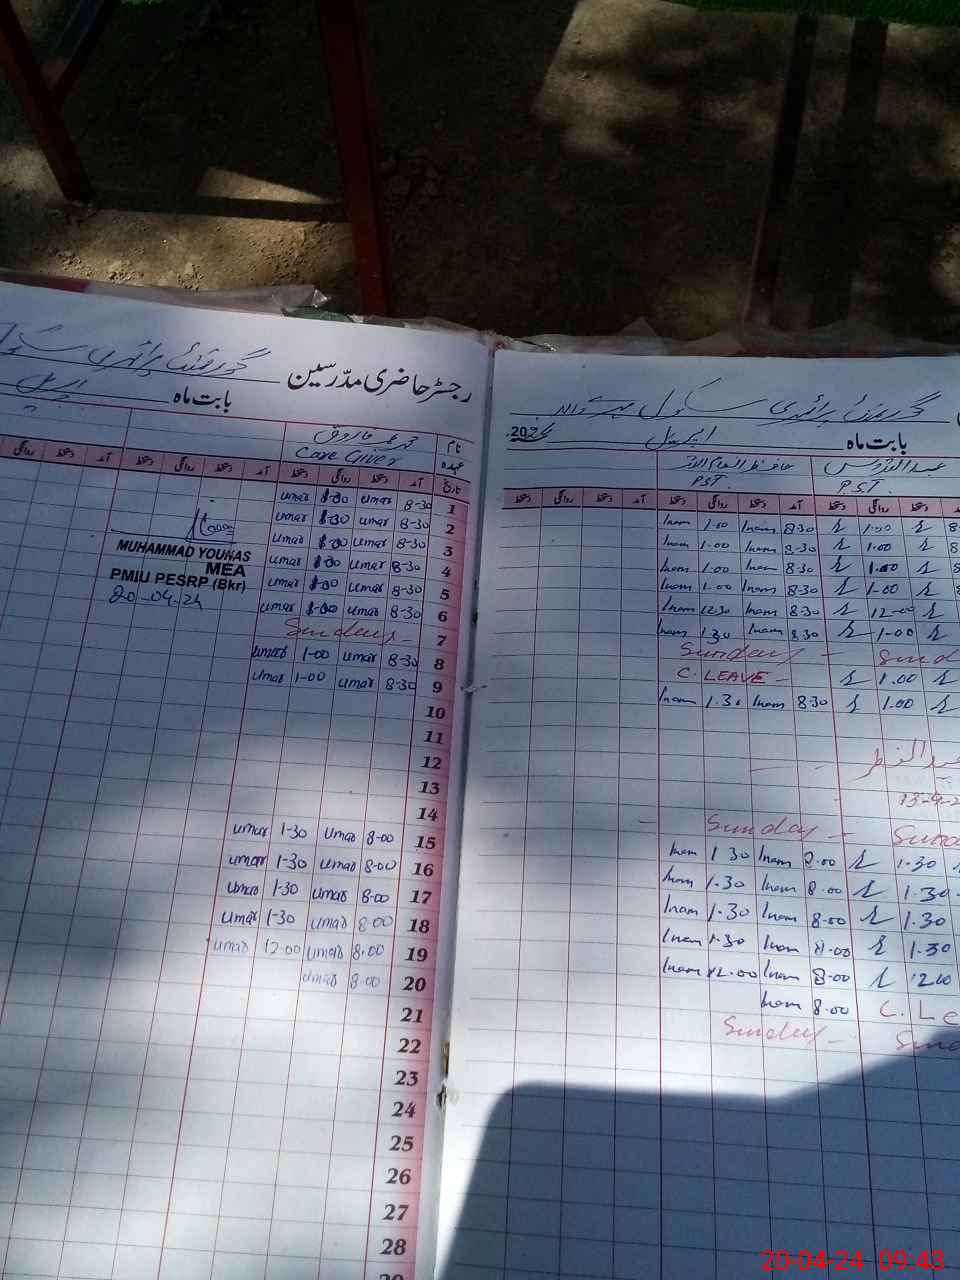 رجسٹر حاضری مدرسین گورنمنٹ پرائمری سکول
بابت ماہ اپریل
نام محمد عمر فاروق
عہدہ Care Giver
تاریخ آمد دستخط روانگی دستخط آمد دستخط روانگی دستخط آمد دستخط روانگی
1 8-30 umar 1-00 umar
2 8-30 umar 1-00 umar
3 8-30 umar 1-00 umar
4 8-30 umar 1-00 umar
5 8-30 umar 1-00 umar
6 8-30 umar 1-00 umar
7 Sunday -
8 8-30 umar 1-00 umar
9 8-30 umar 1-00 umar
10
11
12
13
14
15 8-00 umar 1-30 umar
16 8-00 umar 1-30 umar
17 8-00 umar 1-30 umar
18 8-00 umar 1-30 umar
19 8-00 umar 12-00 umar
20 8-00 umar
21
22
23
24
25
26
27
28
29
MUHAMMAD YOUNAS
MEA
PMIU PESRP (Bkr)
20-04-24
گورنمنٹ پرائمری سکول
بابت ماہ اپریل 2024
حافظ انعام اللہ
P.S.T. PST.
آمد دستخط روانگی دستخط آمد دستخط روانگی دستخط
1.00 8-30 Inam 1.00 Inam
1.00 8-30 Inam 1.00 Inam
1.00 8-30 Inam 1.00 Inam
1-00 8-30 Inam 1.00 Inam
12-00 8-30 Inam 12.30 Inam
1-00 8.30 Inam 1.30 Inam
Sund Sunday -
1.00 C. LEAVE -
1.00 8-30 Inam 1.30 Inam
عید الفطر
13-4-2
Sund Sunday -
1.30 8.00 Inam 1.30 Inam
1.30 8.00 Inam 1.30 Inam
1.30 8-00 Inam 1.30 Inam
1.30 8.00 Inam 1.30 Inam
1200 8-00 Inam 12.00 Inam
C. Le 8.00 Inam
Sund Sunday -
20-04-24 09:43